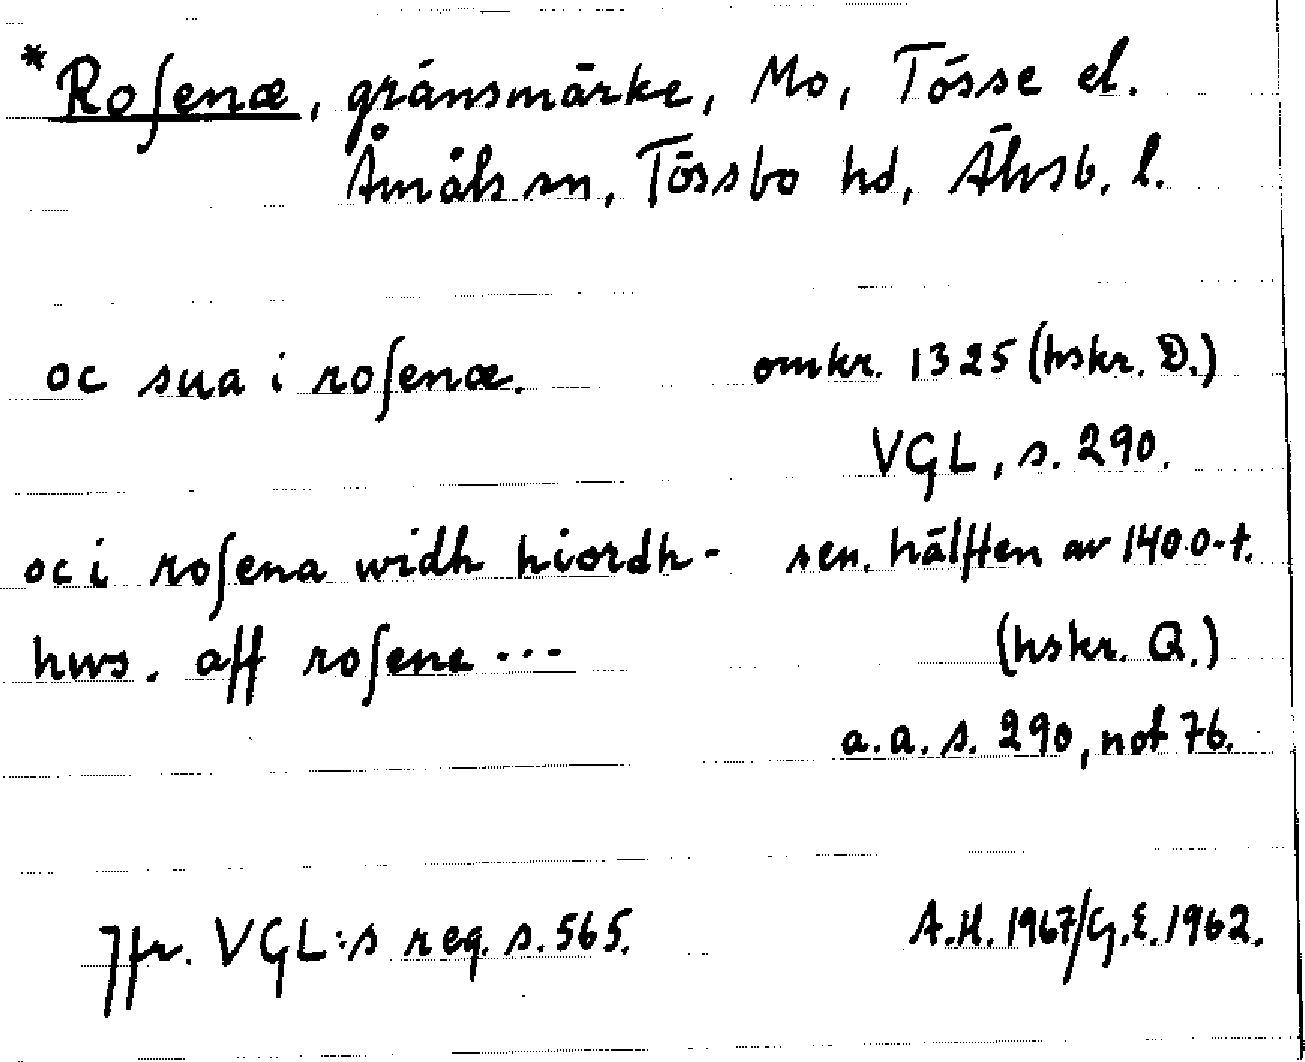 *Roſenæ, gränsmärke, Mo, Tösse el.
Åmåls sn, Tössbo hd, Älvsb. l.
oc sua i roſenæ. omkr. 1325 (hskr. D.)
VGL, s. 290.
oc i roſena widh hiordh- sen. hälften av 1400-t.
hws. aff roſene ... (hskr. Q.)
a.a. s. 290, not 76.
Jfr. VGL:s reg. s. 565. A.H. 1967/G.E. 1962.